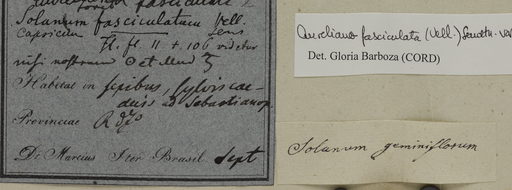 fasciculatum
Solanum fasciculatum Vell.
Capsicum
Fl. fl. II t 106 videtur
nisi nostrum
Habitat in sepibus, sylvis cae-
duis ad Sebastianop.
Provinciae R d Jo
Dr Martius Iter Brasil. Sept
Aureliana fasciculata (Vell.) Sendtn. var
Det. Gloria Barboza (CORD)
Solanum geminiflorum